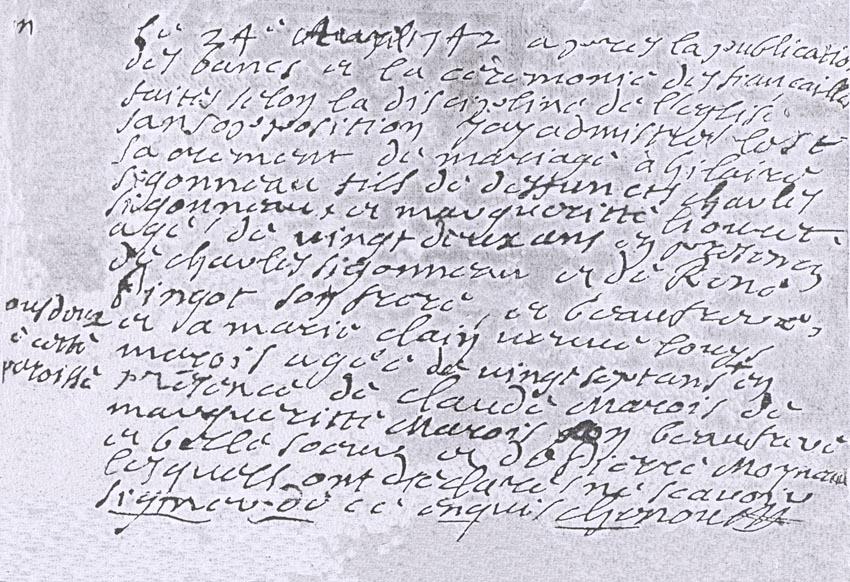 n
Le 24e Avril 1742 apres la publication
des bancs et la ceremonie des fiancailles
faites selon la discipline de l'eglise
sans opposition j'ay admistrer le st
sacrement de mariage a hilaire
sigonneau fils de deffunct charles
sigonneau, et margueritte
agé de vingt deux ans en presence
de charles sigonneau et de René
pingot son frere, et beaufrere,
et a marie clain veuve louys
marois agée de vingt sept ans en
présence de claude Marois de
margueritte Marois son beaufrere
et belle soeur et de pierre Moynau
lesquels ont declarés ne scavoir
signer de ce enquis
tous deux
cette
paroisse